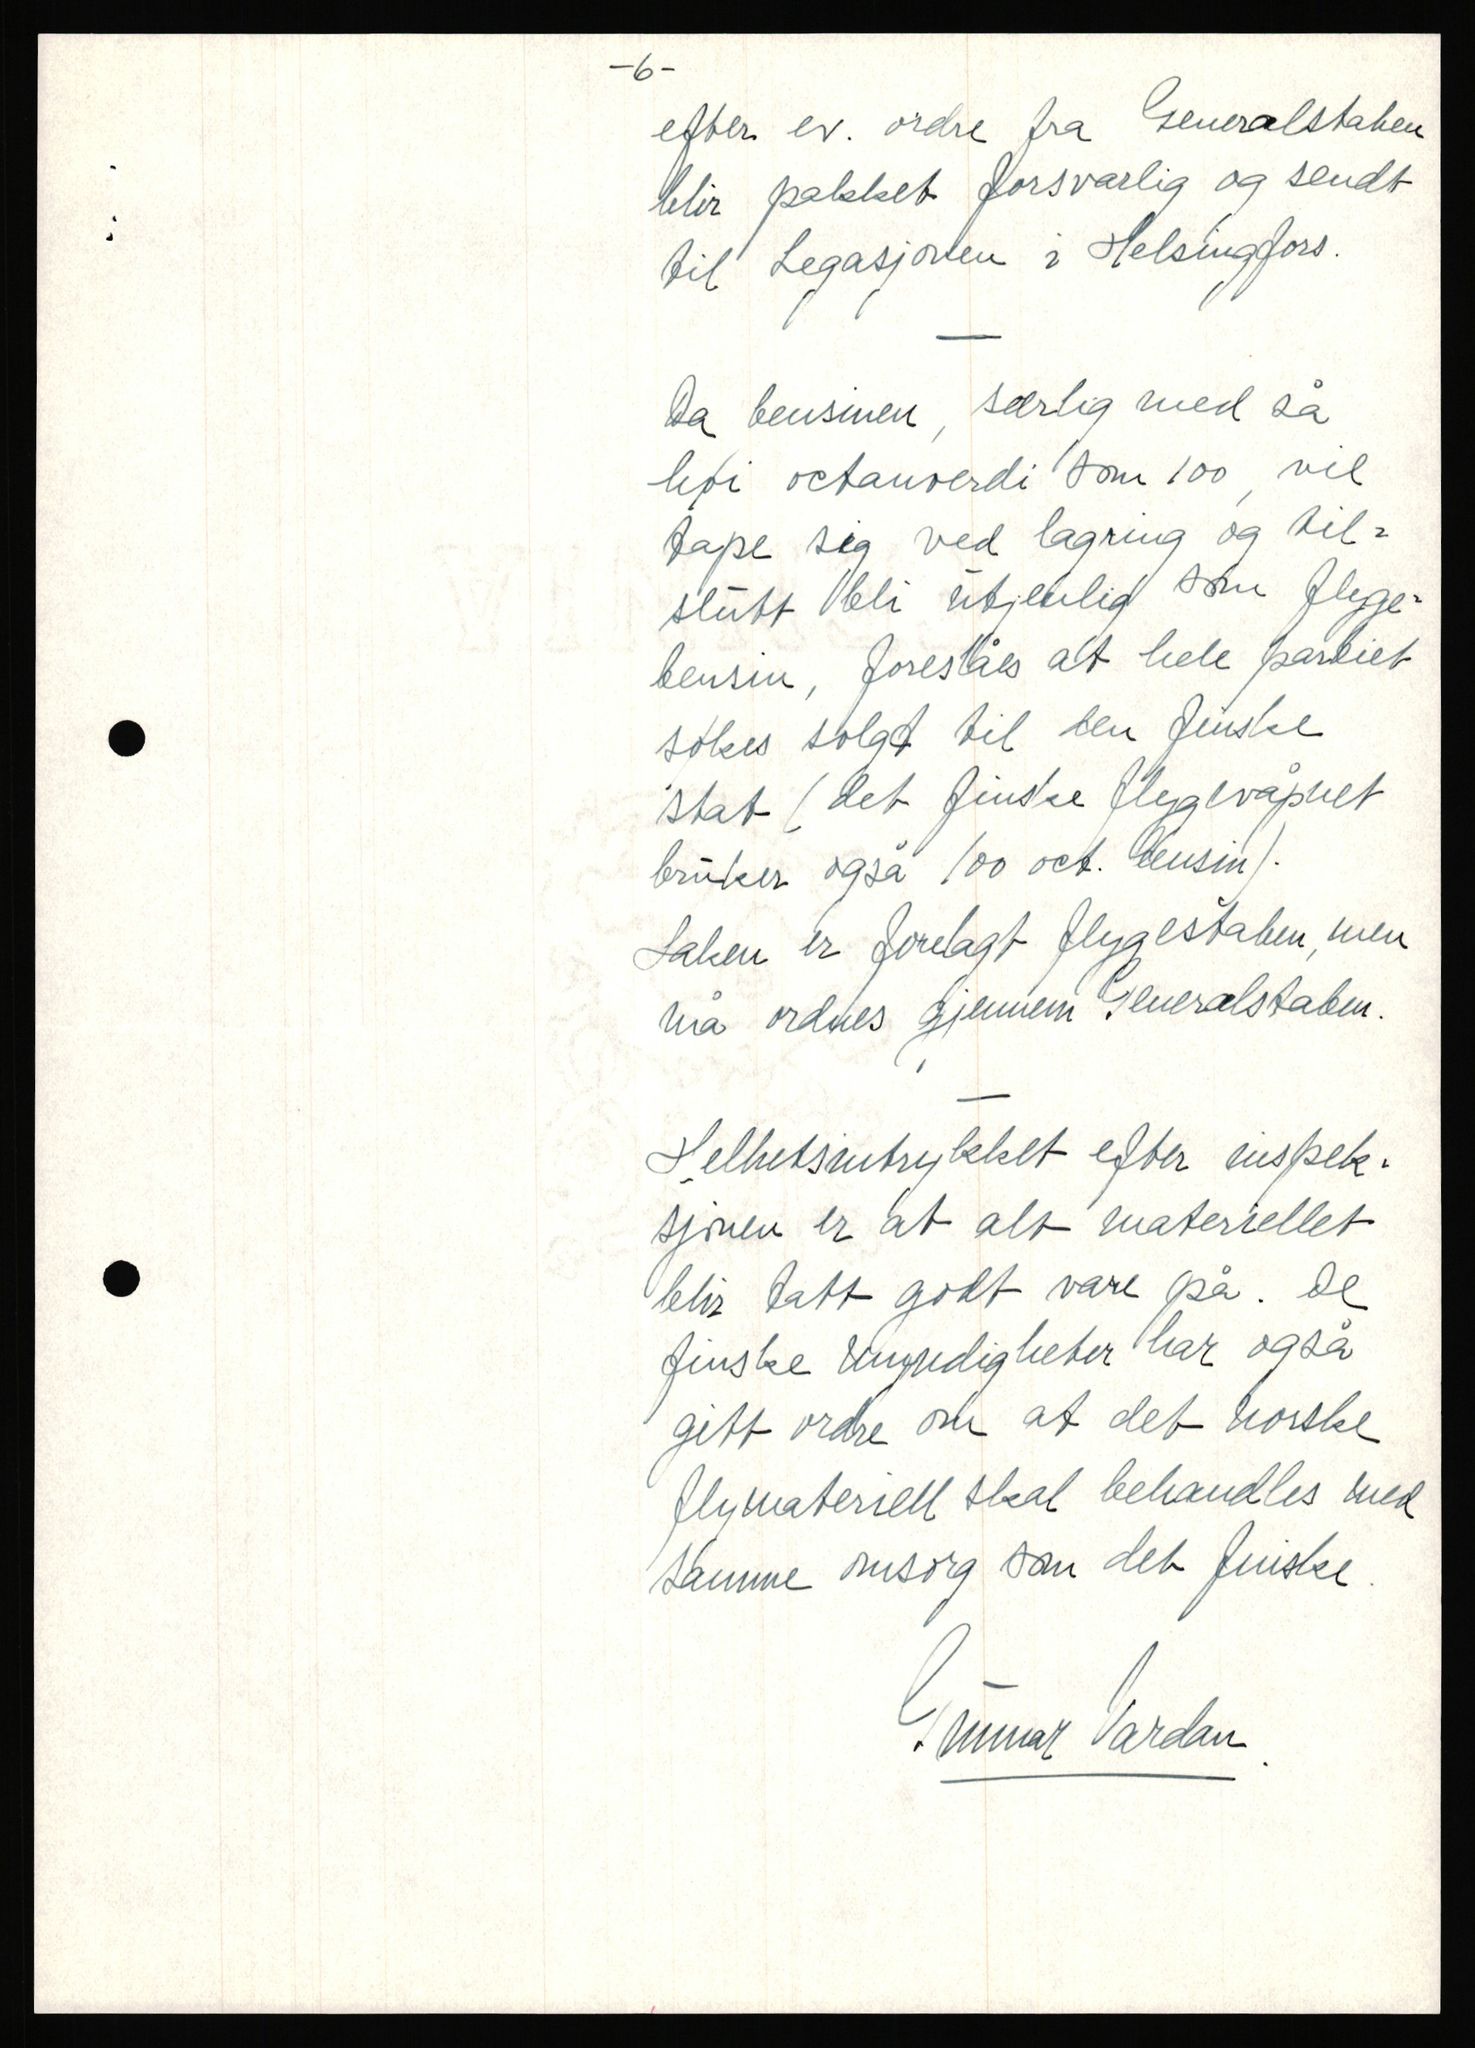 -6-
efter ev. ordre fra Generalstaben
blir pakket forsvarlig og sendt
til Legasjonen i Helsingfors.
—
Da bensinen, særlig med så
høi octanverdi som 100, vil
tape sig ved lagring og til=
slutt bli utjenlig som flyge=
bensin, foreslåes at hele partiet
søkes solgt til den finske
stat (det finske flygevåpnet
bruker også 100 oct. bensin).
Saken er forelagt flygestaben, men
må ordnes gjennem Generalstaben.
—
Helhetsintrykket efter inspek-
sjonen er at alt materiellet
blir tatt godt vare på. De
finske myndigheter har også
gitt ordre om at det norske
flymateriell skal behandles med
samme omsorg som det finske.
Gunnar Vardan.